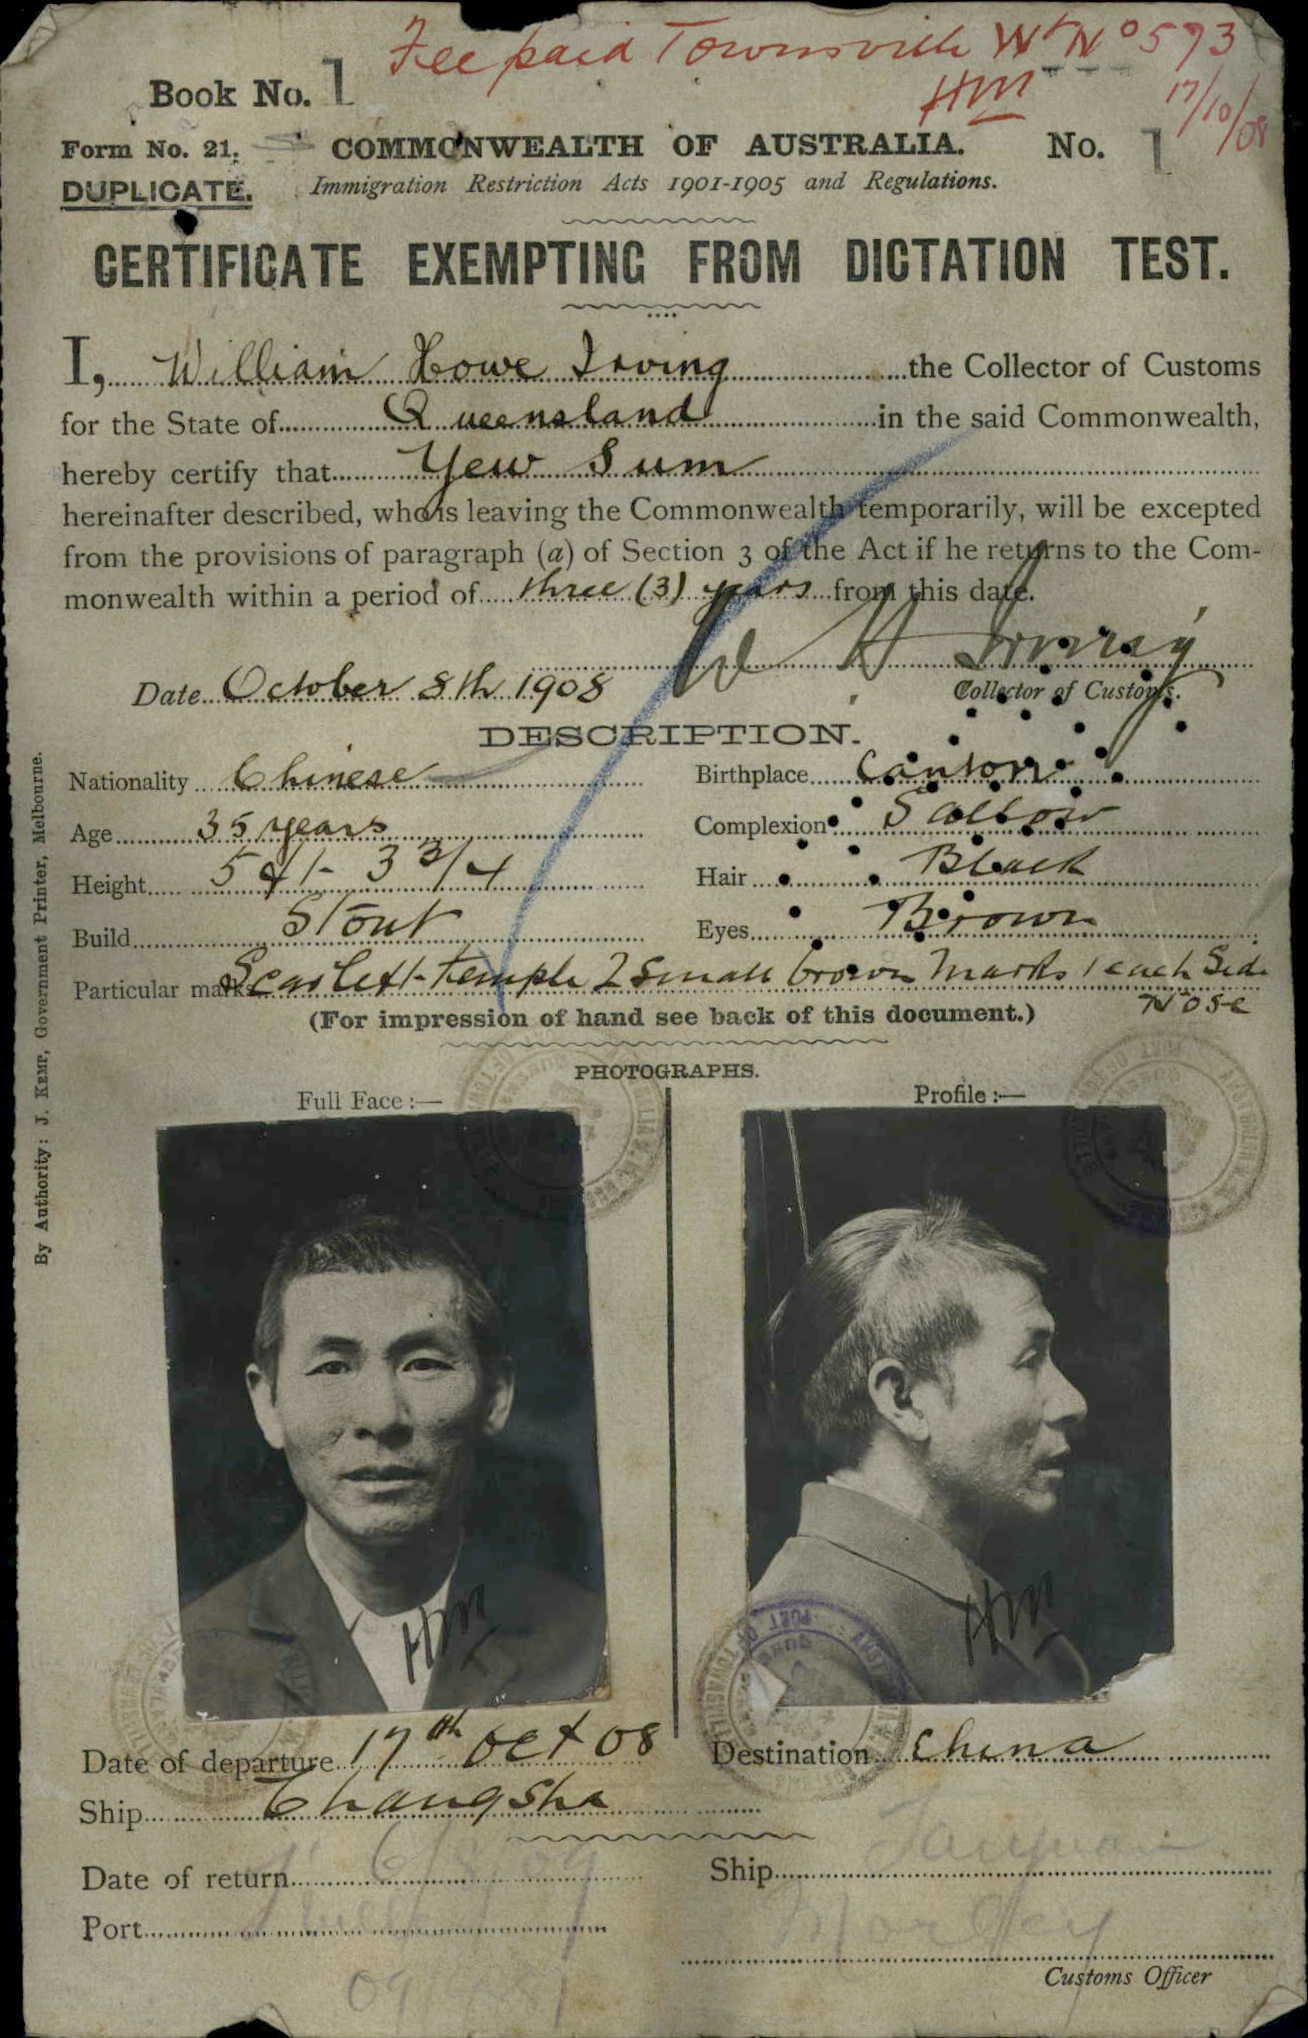 Fee paid Townsville Wt No 573
HM 17/10/08
Book No. 1
Form No. 21. COMMONWEALTH OF AUSTRALIA. No. 1
DUPLICATE. Immigration Restriction Acts 1901-1905 and Regulations.
CERTIFICATE EXEMPTING FROM DICTATION TEST.
I, William Howe Irving the Collector of Customs
for the State of Queensland in the said Commonwealth,
hereby certify that Yew Sum
hereinafter described, who is leaving the Commonwealth temporarily, will be excepted
from the provisions of paragraph (a) of Section 3 of the Act if he returns to the Com-
monwealth within a period of three (3) years from this date.
W H Irving
Date October 8th 1908 Collector of Customs.
DESCRIPTION.
Nationality Chinese Birthplace Canton
Age 35 years Complexion Sallow
Height 5 ft 3 3/4 Hair Black
Build Stout Eyes Brown
Particular marks Scar left temple 2 small brown marks 1 each side
Nose
(For impression of hand see back of this document.)
PHOTOGRAPHS.
Full Face :— Profile :—
HM HM
Date of departure 17th Oct 08 Destination China
Ship Changsha
Date of return 6/8/09 Ship Taiyuan
Port
Customs Officer
By Authority: J. KEMP, Government Printer, Melbourne.